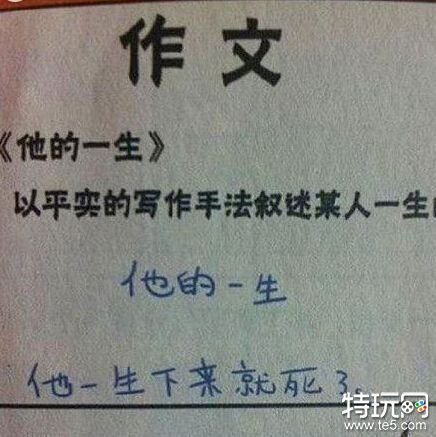 作文
《他的一生》
以平实的写作手法叙述某人一生
他的一生
他一生下来就死了。
特玩网
www.te5.com